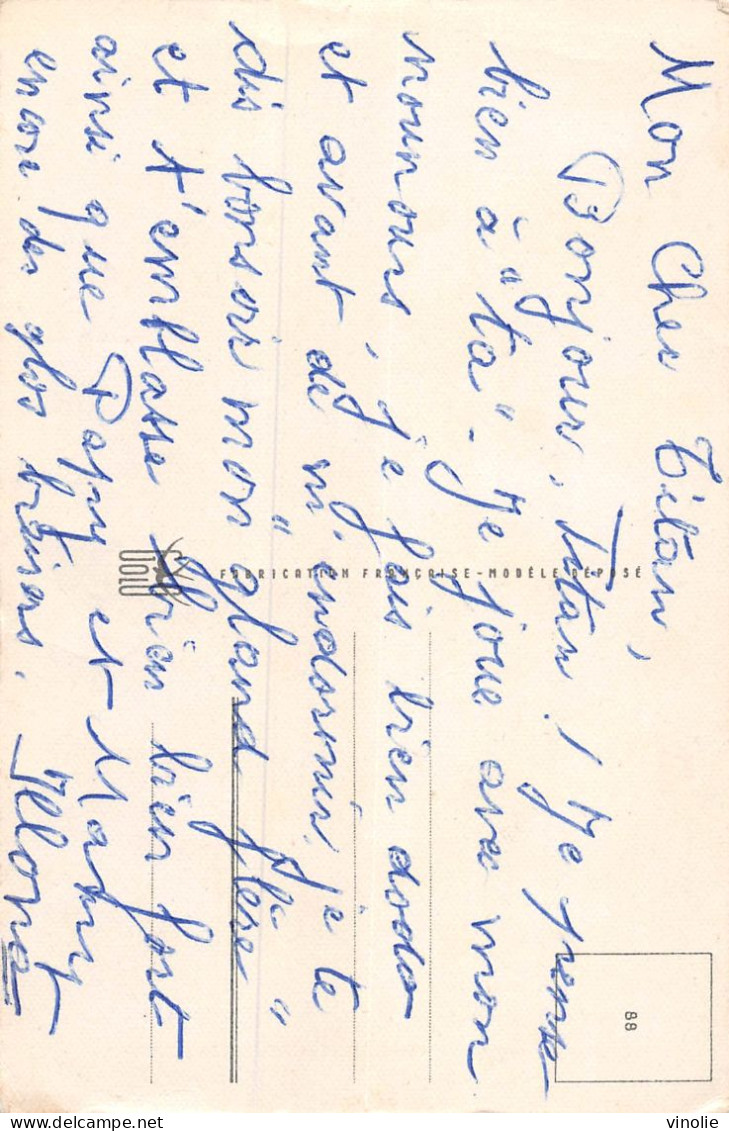 Mon Cher Titan,
Bonjour, Tatan ! Je pense
bien à "ta" - Je joue avec mon
nounours, je fais bien dodo
et avant de m'endormir, je te
dis bonsoir mon "gland flese"
et t'emblasse bien bien fort
ainsi que Papy et Mamy
encore des glos baisers.
Illona
FABRICATION FRANÇAISE - MODÈLE DÉPOSÉ
88
vinolie